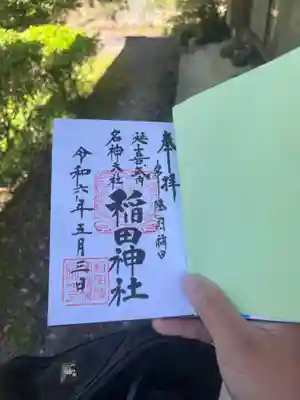 奉拝
常陸国稲田
稲田神社
延喜式内
名神大社
令和六年五月三日